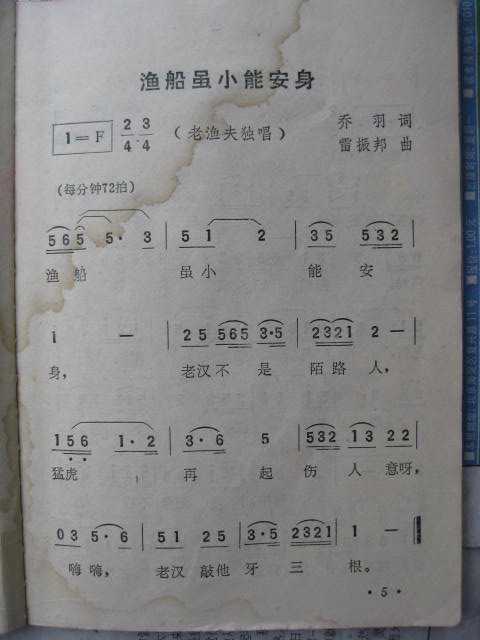 渔船虽小能安身
1=F 2/4 3/4 （老渔夫独唱） 乔羽 词
雷振邦 曲
（每分钟72拍）
565 5· 3 | 5 1 2 | 35 532 |
渔船 虽小 能安
1 — | 25 565 3·5 | 2321 2 — |
身， 老汉不是 陌路人，
156 1·2 | 3·6 5 | 532 13 22 |
猛虎 再起 伤人意呀，
03 5·6 | 51 25 | 3·5 2321 | 1 — |
嗨嗨， 老汉敲他 牙三 根。
·5·